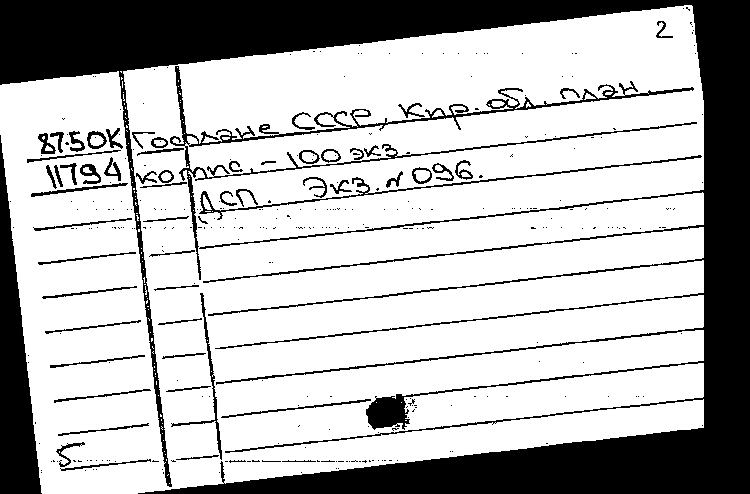 2
87.50К Госплане СССР, Кир. обл. план.
11794 комис. – 100 экз.
ДСП. Экз. №096.
5